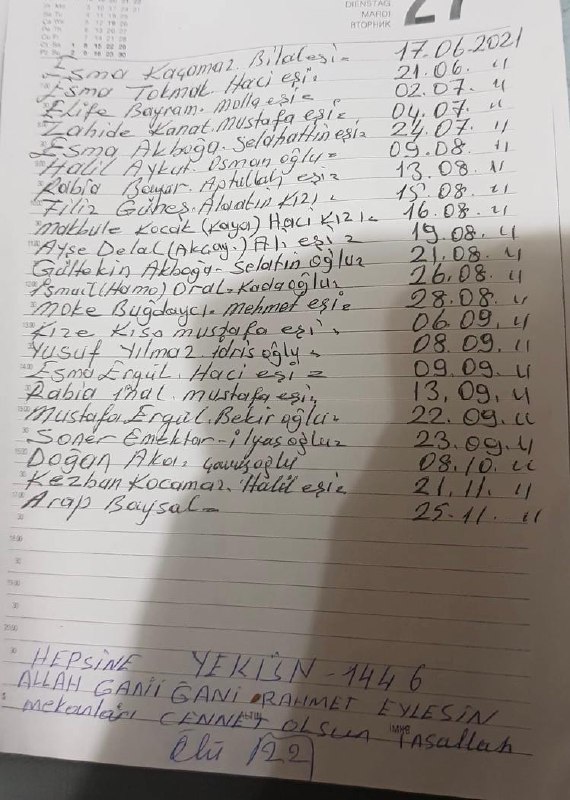 DIENSTAG
MARDI
ВТОРНИК
27
Esma Kaçamaz Bilal eşi = 17.06.2021
Esma Tokmak Haci eşi = 21.06. "
Elife Bayram. Molla eşi = 02.07. "
Zahide Kanat. Mustafa eşi = 04.07. "
Esma Akboğa. Selahattin eşi = 24.07. "
Halil Aykut Osman oğlu = 09.08. "
Rabia Baysar. Aptullah eşi = 13.08. "
Filiz Güneş. Alaatin Kızı = 15.08. "
Makbule Kocak (Kaya) Hacı Kızı = 16.08. "
Ayşe Delal (Akçay.) Ali eşi = 19.08. "
Gültekin Akboğa - Selatin oğlu = 21.08. "
İsmail (Hamo) Oral - Kada oğlu = 26.08. "
Moke Buğdaycı. Mehmet eşi = 28.08. "
Kize Kısa mustafa eşi = 06.09. "
Yusuf Yılmaz. idris oğlu = 08.09. "
Esma Ergül. Haci eşi = 09.09. "
Rabia inal. mustafa eşi = 13.09. "
Mustafa Ergül. Bekir oğlu = 22.09. "
Soner Emektar - ilyas oğlu = 23.09. "
Doğan Aka = çavuşoğlu 08.10. "
Kezban Kocamaz. Halil eşi = 21.11. "
Arap Baysal = 25.11. "
HEPSİNE YEKÜN - 1446
ALLAH GANİİ GANİ RAHMET EYLESİN
mekanları CENNET OLSUN İnşallah
Ölü 122